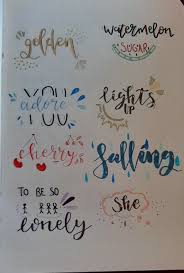 golden
watermelon
SUGAR
adore
YOU
lights
UP
cherry
falling
TO BE SO
lonely
She